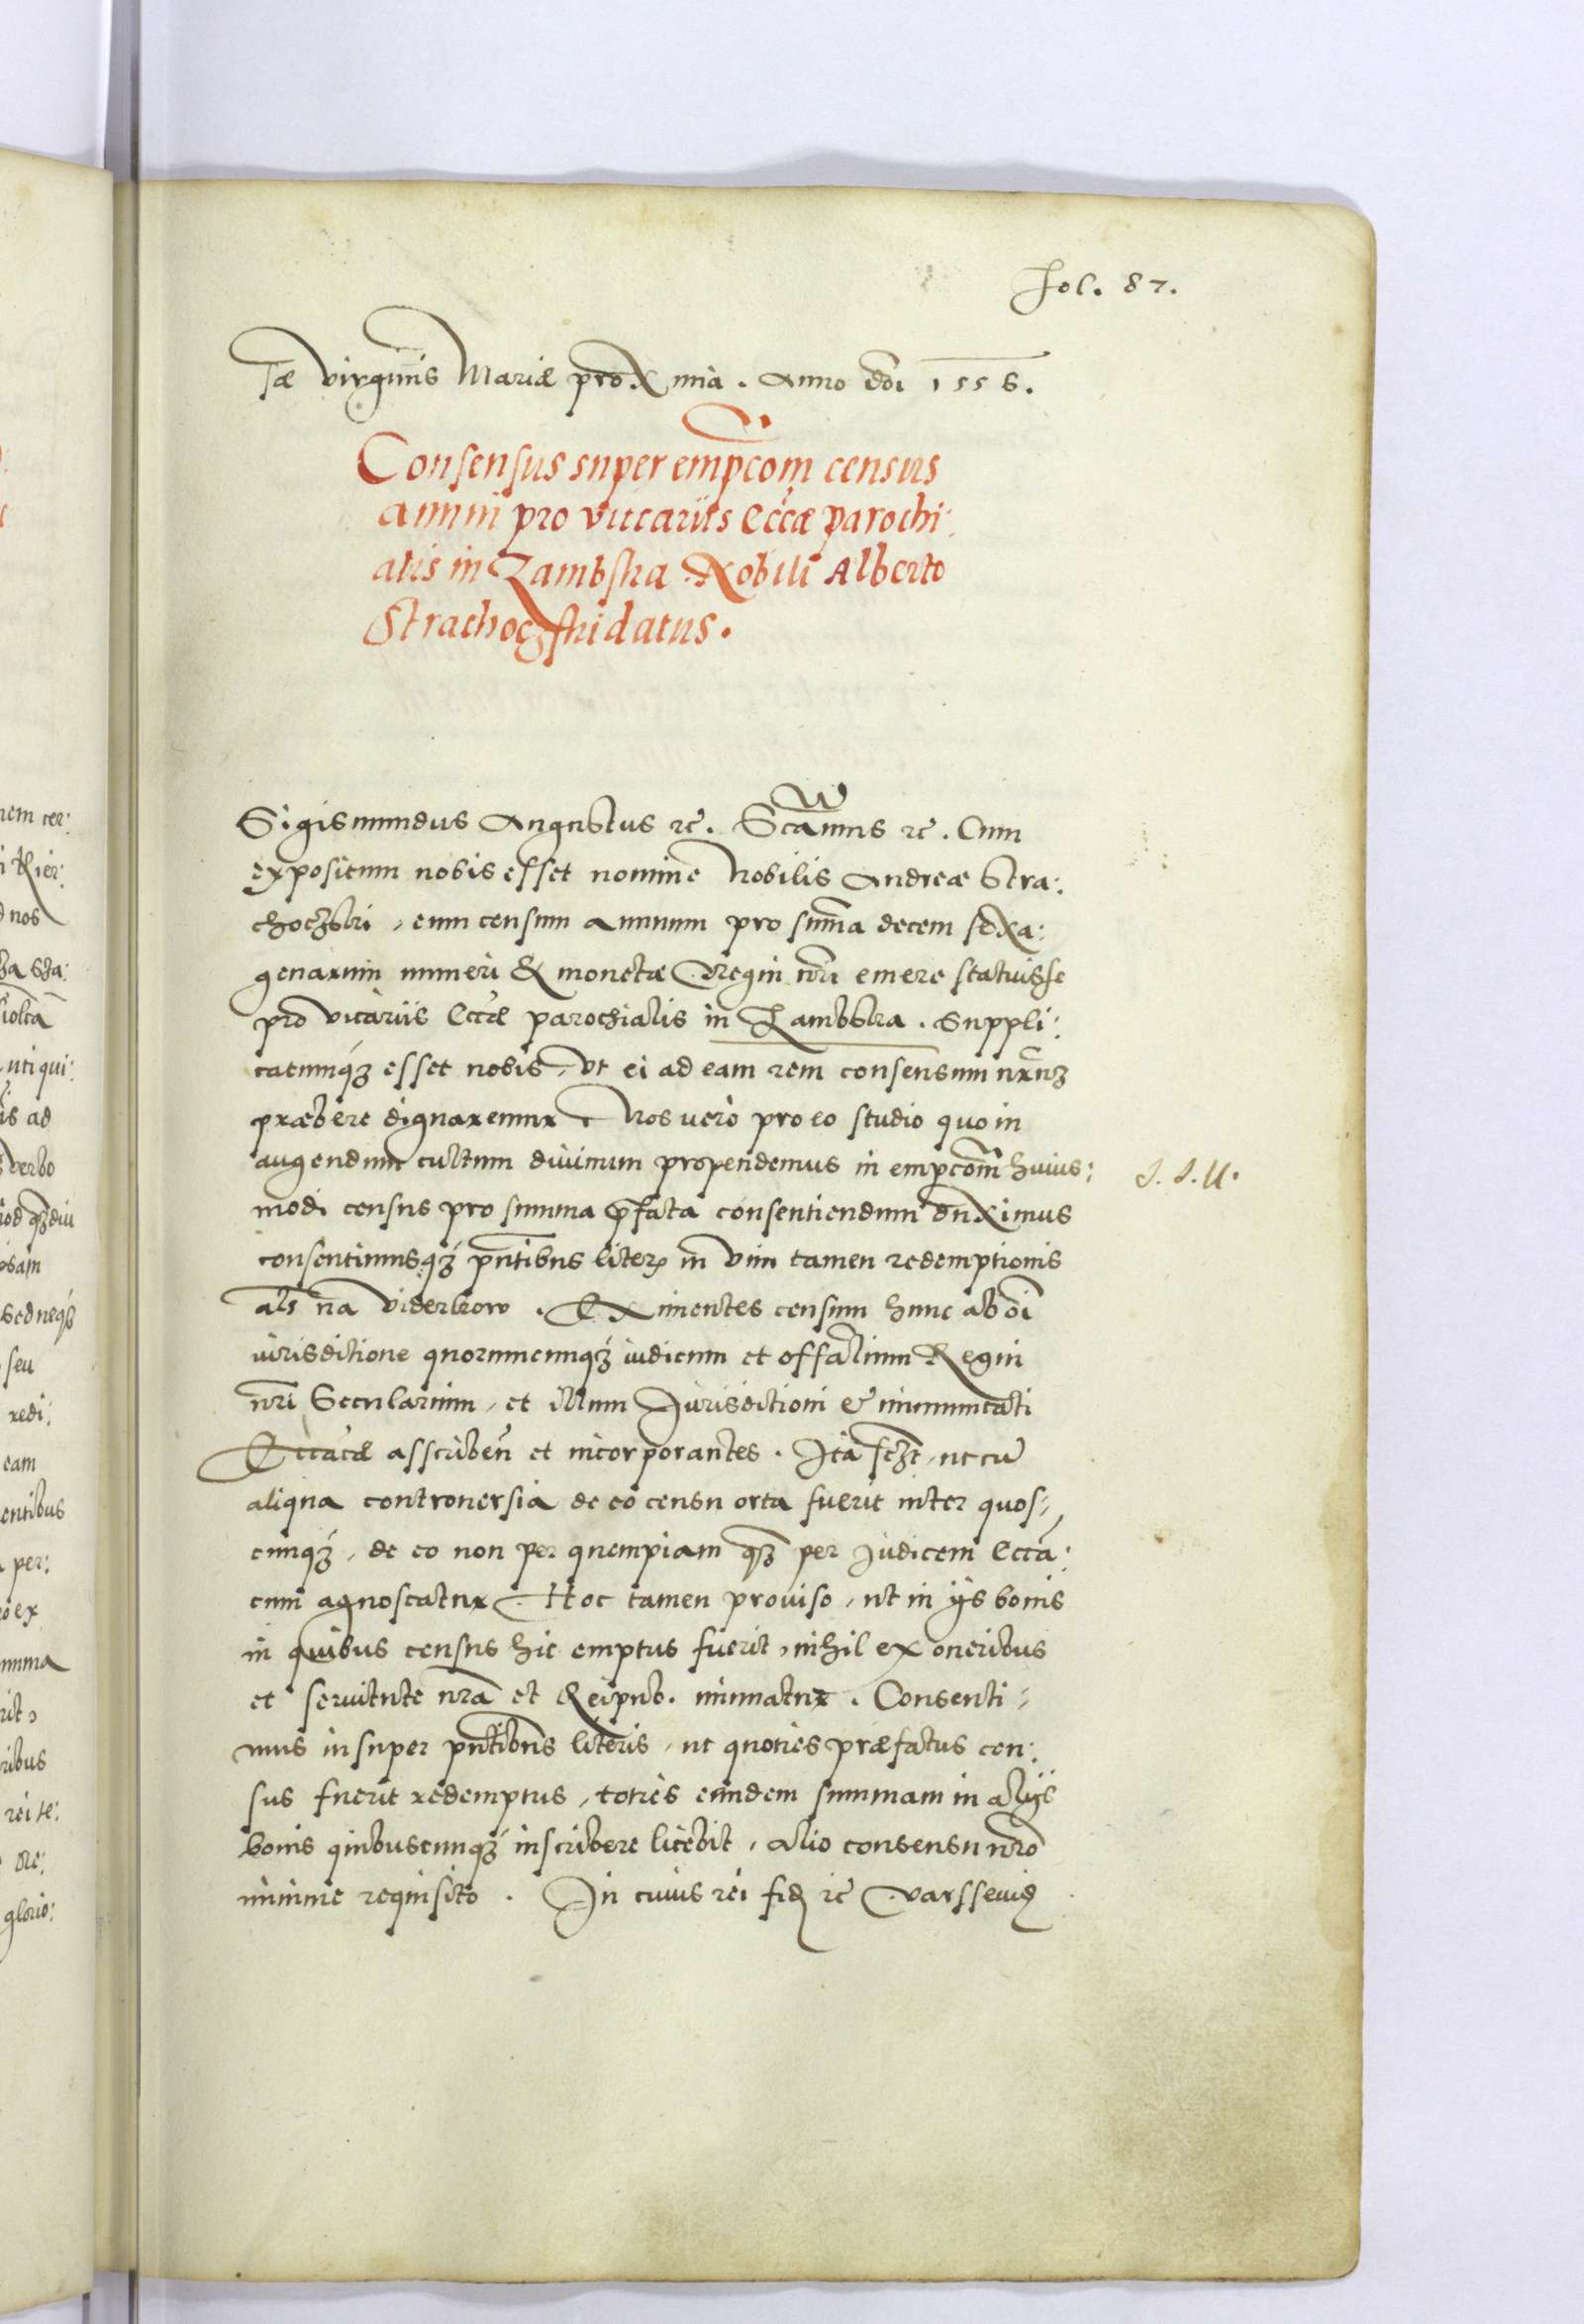 Fol. 87.
tæ virginis Mariæ proxima. Anno dni 1556.
Consensus super empcom census
annui pro viccariis Eccæ parochi:
alis in Zambska Nobili Alberto
Strachoczski datus.
Sigismundus Augustus etc. Scamus etc. Cum
expositum nobis esset nomine Nobilis Andreæ Stra:
choczski, eum censum annuum pro suma decem sexa:
genarum numeri & monetæ Regni nri emere statuisse
pro vicariis Eccæ parochialis in Zambska. Suppli:
catumq3 esset nobis, vt ei ad eam rem consensum nrum
præbere dignaremur. Nos vero pro eo studio quo in
augendum cultum divinum propendemus in empcom huius:
modi census pro summa pfata consentiendum duximus
consentimusq3 pntibus liter in vim tamen redemptionis
als na viderkow. Eximentes censum hunc ab oi
iurisditione quorumcumq3 iudicum et offalium Regni
nri Secularium, et illum Jurisditioni et immunitati
Eccacæ asscriben et incorporantes. Ita scz, ut cu
aliqua controuersia de eo censu orta fuerit inter quos,,
cunq3, de eo non per quempiam q3 per Judicem Ecca:
cum agnoscatur. Hoc tamen proviso, ut in ijs bonis
in quibus census hic emptus fuerit, nihil ex oneribus
et servitute nra et Reipub. minuatur. Consenti,,
mus insuper pntibus literis, ut quoties præfatus cen:
sus fuerit redemptus, toties eandem summam in alijs
bonis quibuscunq3 inscribere licebit, alio consensu nro
minime requisito. In cuius rei fid etc Varssevie
S. S. U.